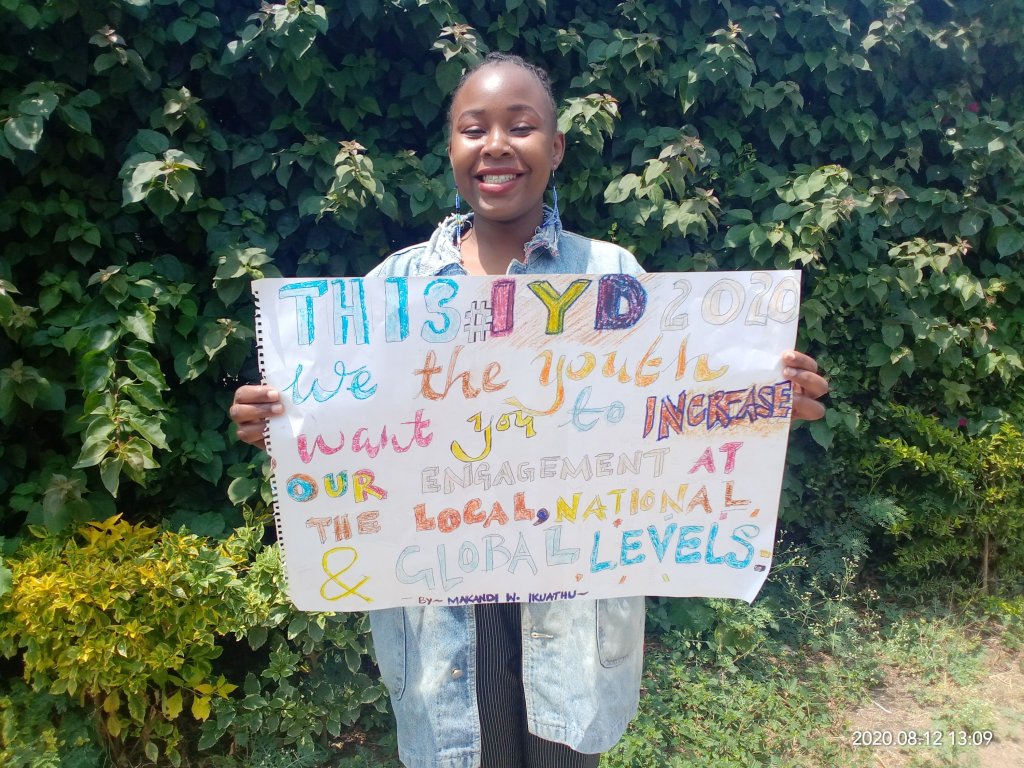 THIS #IYD 2020
We the youth
want you to INCREASE
OUR ENGAGEMENT AT
THE LOCAL, NATIONAL
& GLOBAL LEVELS.
- BY~ MAKANDI W. IKUATHU~
2020.08.12 13:09